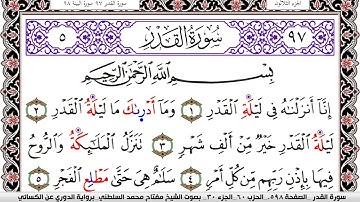 الجزء الثلاثون
سورة القدر ٩٧ سورة البينة ٩٨
٩٧ سُورَةُ الْقَدْرِ ٥
بِسْمِ اللَّهِ الرَّحْمَٰنِ الرَّحِيمِ
إِنَّا أَنزَلْنَٰهُ فِي لَيْلَةِ الْقَدْرِ ١ وَمَا أَدْرِىٰكَ مَا لَيْلَةُ الْقَدْرِ ٢
لَيْلَةُ الْقَدْرِ خَيْرٌ مِّنْ أَلْفِ شَهْرٍ ٣ تَنَزَّلُ الْمَلَٰٓئِكَةُ وَالرُّوحُ
فِيهَا بِإِذْنِ رَبِّهِم مِّن كُلِّ أَمْرٍ ٤ سَلَٰمٌ هِيَ حَتَّىٰ مَطْلِعِ الْفَجْرِ
سورة القدر . الصفحة ٥٩٨. الحزب ٦٠. الجزء ٣٠. بصوت الشيخ مفتاح محمد السلطني .برواية الدوري عن الكسائي